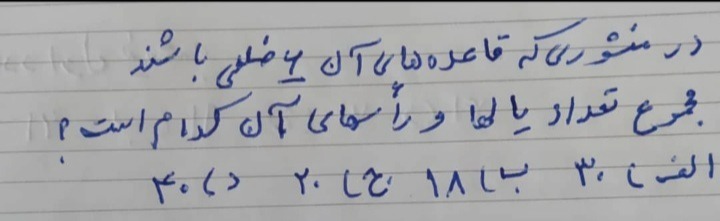 در منشوری که قاعده های آن ۶ ضلعی باشند
مجموع تعداد یالها و رأسهای آن کدام است؟
الف) ۳۰ ب) ۱۸ ج) ۲۰ د) ۴۰